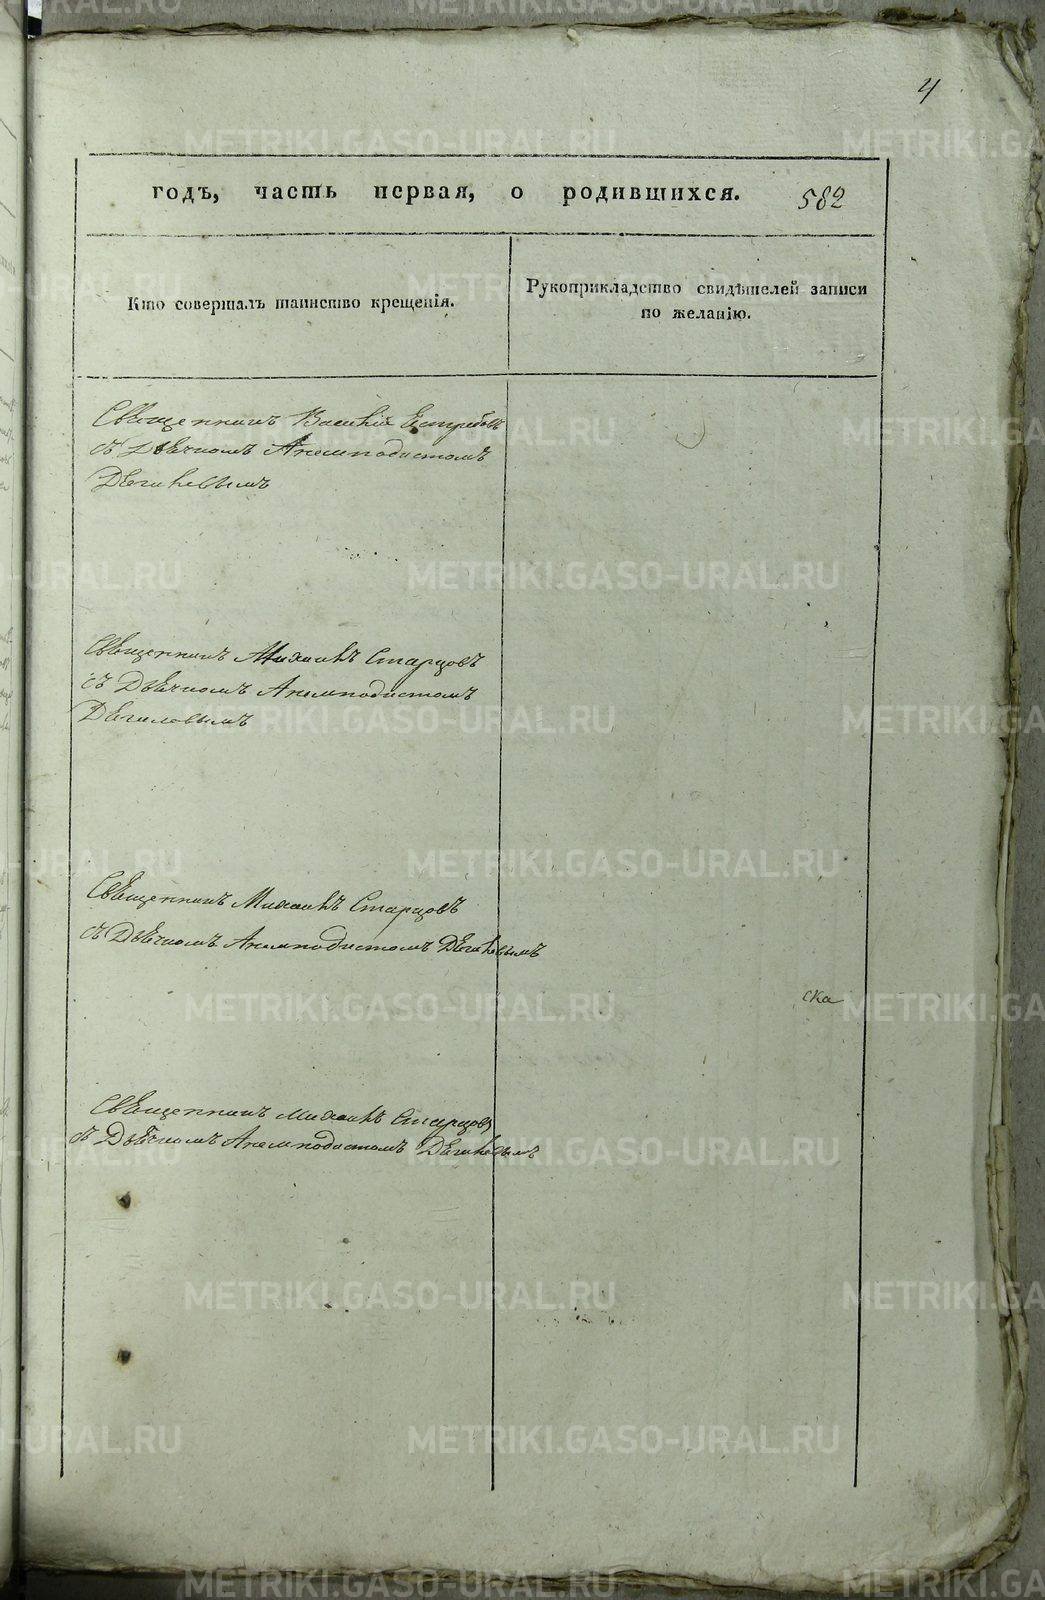 4
годъ, часть первая, о родившихся. 582
Кто совершалъ таинство крещенія.
Рукоприкладство свидѣтелей записи
по желанію.
Священникъ Василій
съ Дьячкомъ Анемподистомъ
Дягилевымъ
Священникъ Михаилъ Старцовъ
съ Дьячкомъ Анемподистомъ
Дягилевымъ
Священникъ Михаилъ Старцовъ
съ Дьячкомъ Анемподистомъ Дягилевымъ
ска
Священникъ Михаилъ Старцовъ
съ Дьячкомъ Анемподистомъ Дягилевымъ
METRIKI.GASO-URAL.RU